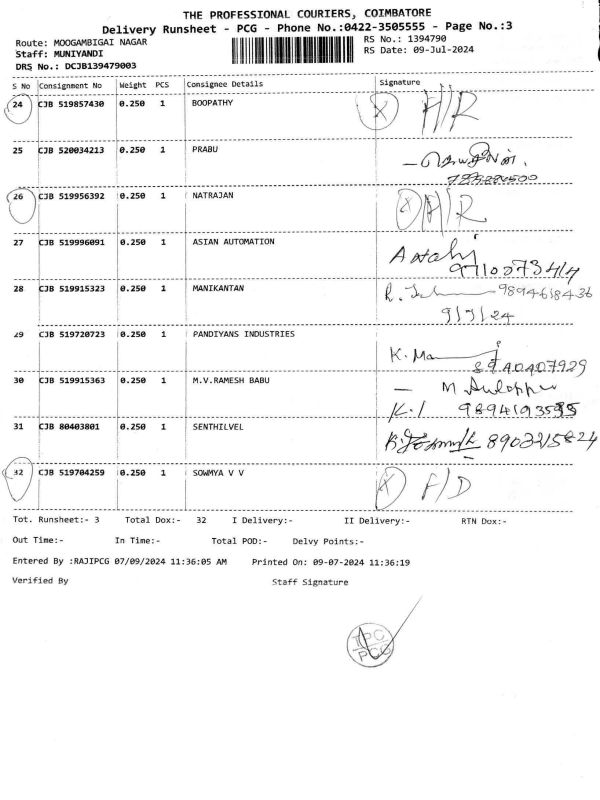 THE PROFESSIONAL COURIERS, COIMBATORE
Delivery Runsheet - PCG - Phone No.:0422-3505555 - Page No.:3
Route: MOOGAMBIGAI NAGAR RS No.: 1394790
Staff: MUNIYANDI RS Date: 09-Jul-2024
DRS No.: DCJB139479003
S No Consignment No Weight PCS Consignee Details Signature
24 CJB 519857430 0.250 1 BOOPATHY
25 CJB 520034213 0.250 1 PRABU
26 CJB 519956392 0.250 1 NATRAJAN
27 CJB 519996091 0.250 1 ASIAN AUTOMATION
28 CJB 519915323 0.250 1 MANIKANTAN 9894618436
9/7/24
29 CJB 519720723 0.250 1 PANDIYANS INDUSTRIES
8940407929
30 CJB 519915363 0.250 1 M.V.RAMESH BABU
31 CJB 80403801 0.250 1 SENTHILVEL
32 CJB 519704259 0.250 1 SOWMYA V V F/D
Tot. Runsheet:- 3 Total Dox:- 32 I Delivery:- II Delivery:- RTN Dox:-
Out Time:- In Time:- Total POD:- Delvy Points:-
Entered By :RAJIPCG 07/09/2024 11:36:05 AM Printed On: 09-07-2024 11:36:19
Verified By Staff Signature